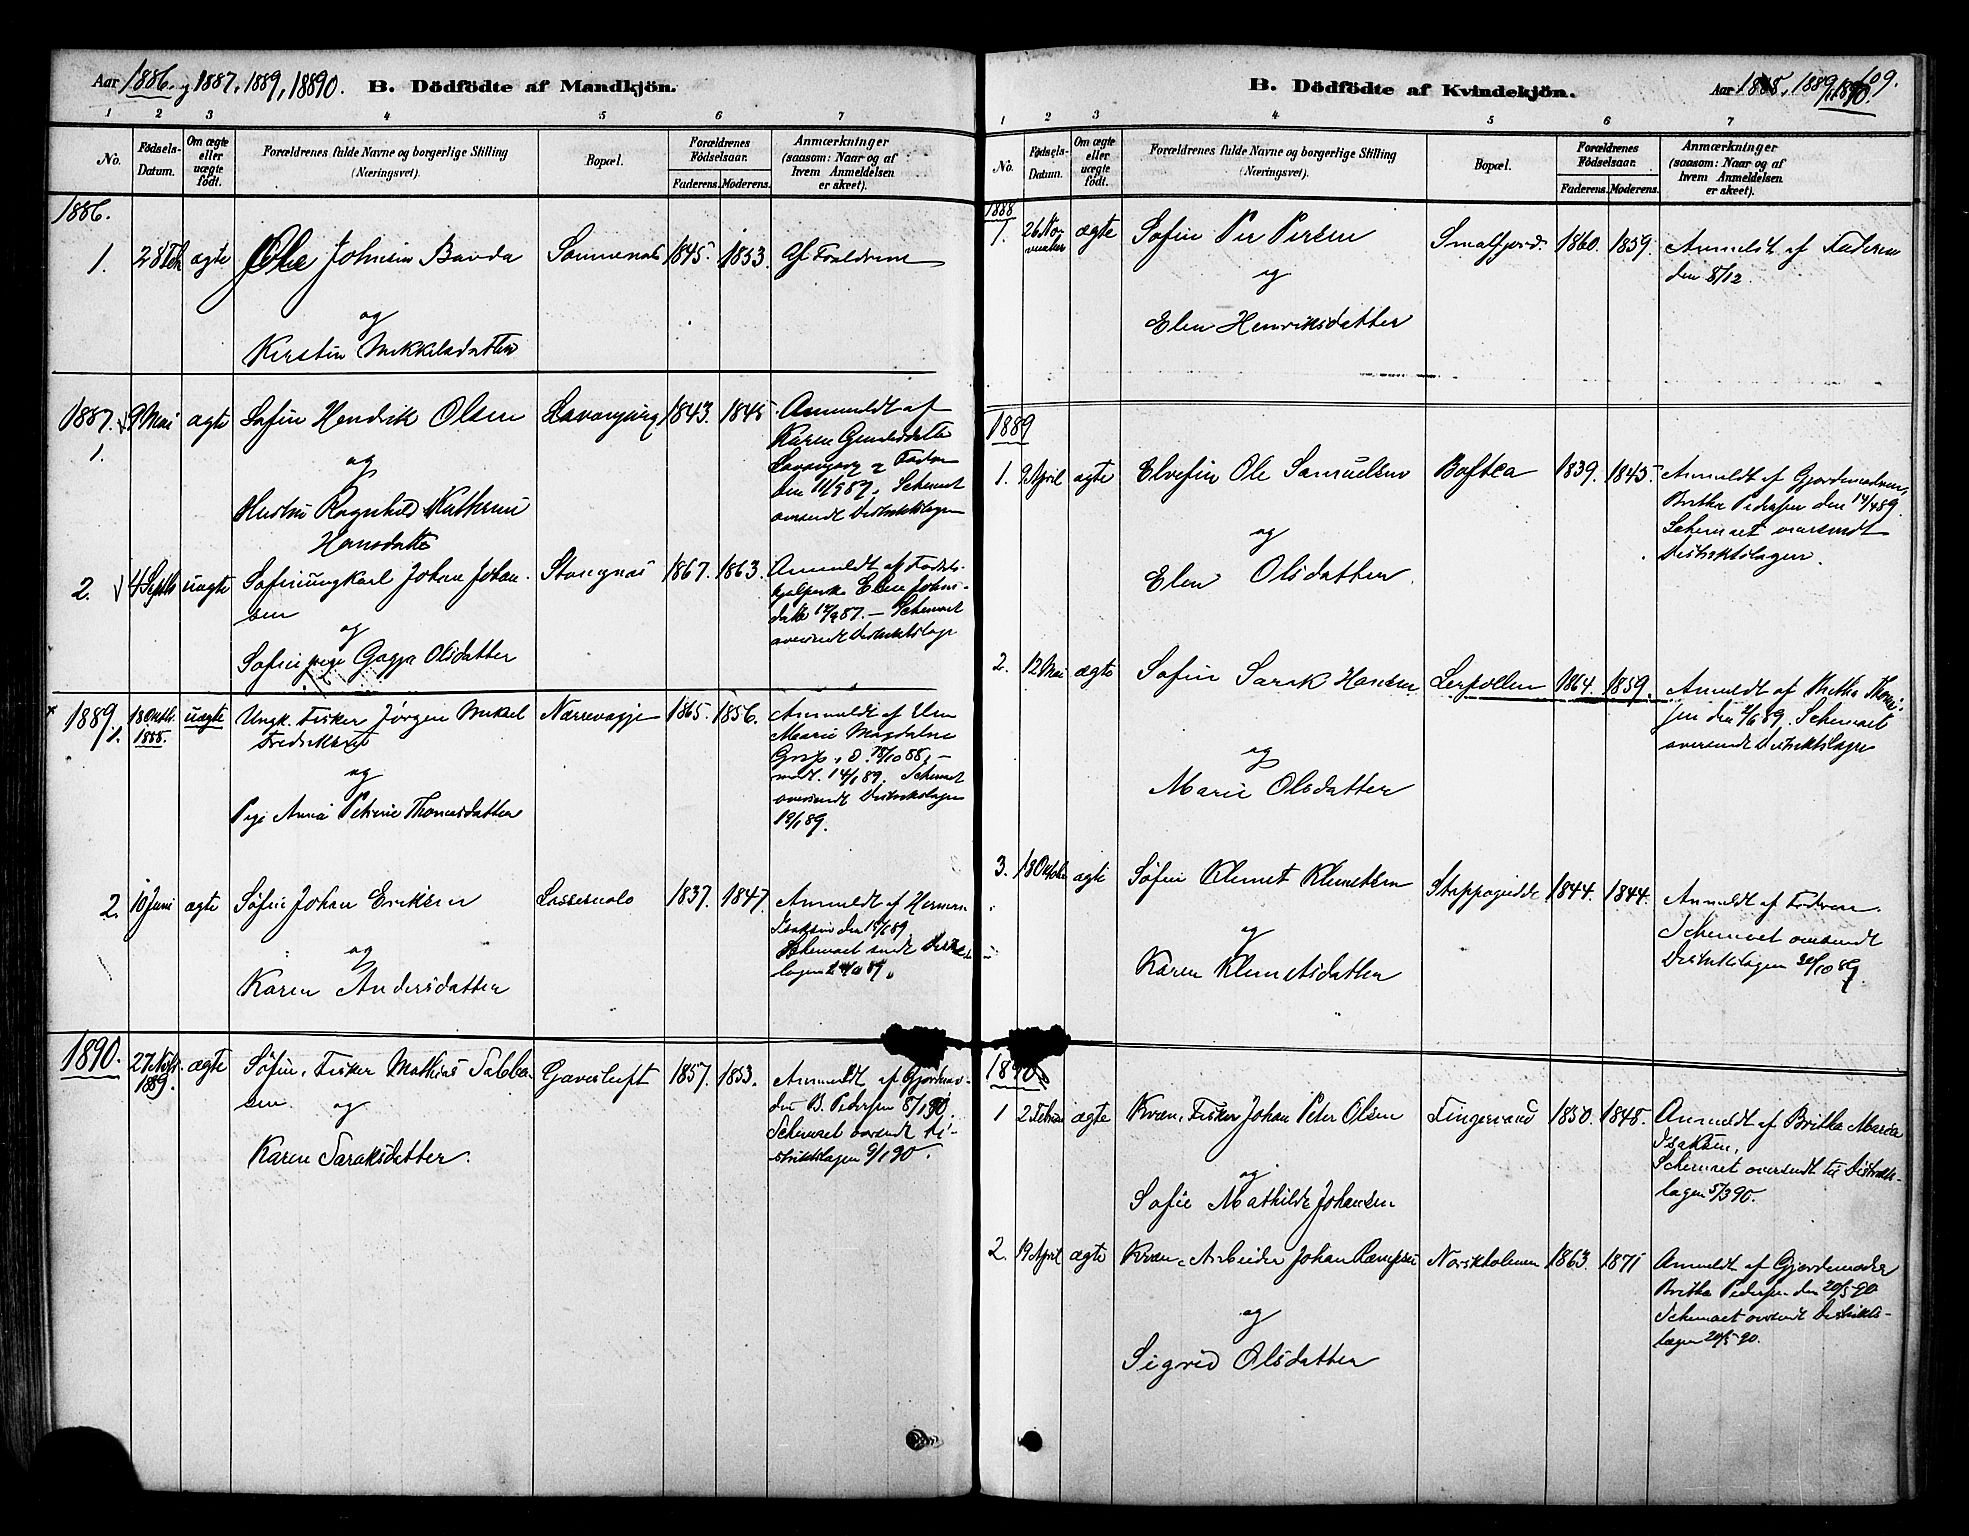 Aar 1886 og 1887, 1889, 18890. B. Dödfödte af Mandkjön.
1 2 3 4 5 6 7
No. Födsels-Datum. Om ægte eller uægte födt. Forældrenes fulde Navne og borgerlige Stilling (Næringsvei). Bopæl. Forældrenes Födselsaar. Faderens. Moderens. Anmærkninger (saasom: Naar og af hvem Anmeldelsen er skeet).
1886.
1. 28 Feb ægte Ole Johnsen Banda 1845 1853. Af Forældrene
og
Kirsten Mikkelsdatter
1887. 9 Mai ægte Søfin Hendrik Olsen 1843. 1845 Anmeldt af
1. Karen
og
den 11/9 87. Schemaet
Hustru Ragnhild Kathrine oversendt Distriktslægen
Hansdatter
2. 4 Septb uægte Søfin ungkarl Johan Johan- Stangnæs 1867. 1863. Anmeldt af Fødsels-
sen hjælperske Elen Johns-
og datter 12/9 87. – Schemaet
Søfin pige Gagga Olsdatter oversendt Distriktslæge
1889 1. 18 Octb. 1888. uægte Ungk. Fisker Jørgen Mikal Nærrevagge 1865. 1856. Anmeldt af
Fredriksen Marie Magdalene
og
Pige Anna Petrine Thomasdatter oversendt Distriktslægen
18/1 89.
2. 10 Juni ægte Søfin Johan Eriksen 1837. 1847. Anmeldt af Herman
Isaksen den 15/6 89.
og Schemaet sendt
Karen Andersdatter
1890. 27 Novbr. 1889. ægte Søfin, Fisker Mathias Sabba- Gavesluft 1857. 1853. Anmeldt af Gjordemo-
sen og der B. Pedersen 8/1 90.
Schemaet oversendt Di-
Karen Saraksdatter. striktslægen 9/1 90.
B. Dödfödte af Kvindekjön. Aar 1888, 1889, 1890. 109.
1 2 3 4 5 6 7
No. Födsels-Datum. Om ægte eller uægte födt. Forældrenes fulde Navne og borgerlige Stilling (Næringsvei). Bopæl. Forældrenes Födselsaar. Faderens. Moderens. Anmærkninger (saasom: Naar og af hvem Anmeldelsen er skeet).
1888
1. 26 November ægte Søfin Per Persen Smalfjord. 1860. 1859. Anmeldt af Faderen
og den 8/12.
Elen Henriksdatter
1889
1. 9 April ægte Elvefin Ole Samuelsen Boftea 1839. 1845 Anmeldt af Gjordemoderen,
Britha Pedersen den 14/4 89.
og Schemaet oversendt
Elen Olsdatter. Distriktslægen.
2. 12 Mai ægte Søfin Sarak Hansen Lerpollen 1864. 1859. Anmeldt af Britha Thom-
sen den 2/6 89. Schemaet
og oversendt Distriktslægen
Marie Olsdatter
3. 18 Octobr ægte Søfin Klemet Klemetsen Stappogiedde 1844. 1844. Anmeldt af Faderen.
og Schemaet oversendt
Karen Klemetsdatter Distriktslægen 30/10 89.
1890
1 2 Febru ægte Kvæn, Fisker Johan Peter Olsen 1850. 1848. Anmeldt af Britha Maria
Isaksen,
og Schemaet oversendt til Distrikts-
Sofie Mathilde Johansen lægen 5/3 90.
2. 19 April ægte Kvæn, Arbeider Johan Norskholmen 1863. 1871 Anmeldt af Gjordemoder
og Britha Pedersen den 20/5 90
Schemaet oversendt Distrikts-
Sigrid Olsdatter lægen 20/5 90.